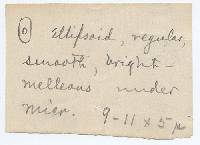 0 Ellipsoid, regular,
smooth, bright-
melleous under
micr.
9-11 x 5 µ